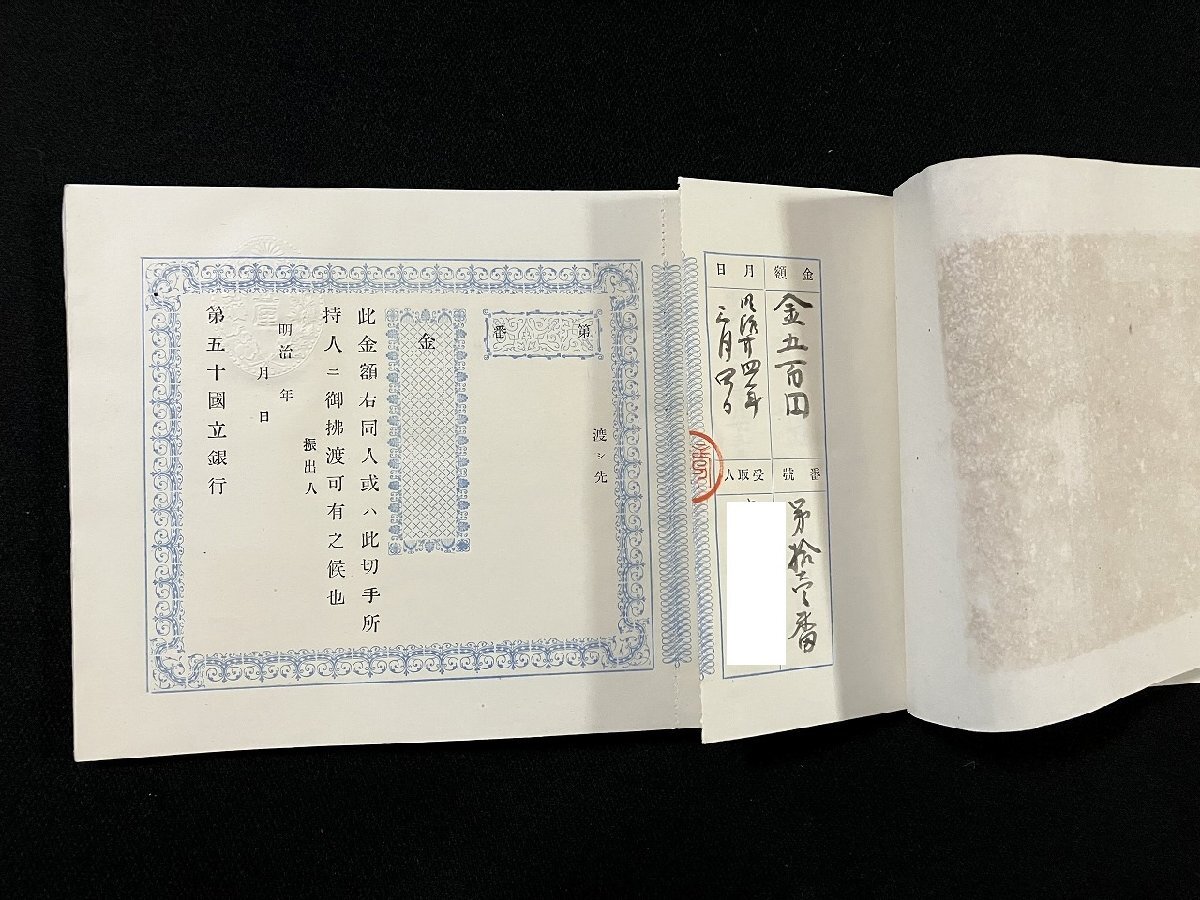 金額
金五百円
月日
明治廿四年
三月四日
番號
第拾壱番
受取人
第　番
渡シ先
金
此金額右同人或ハ此切手所
持人ニ御拂渡可有之候也
振出人
明治　年
月　日
第五十國立銀行